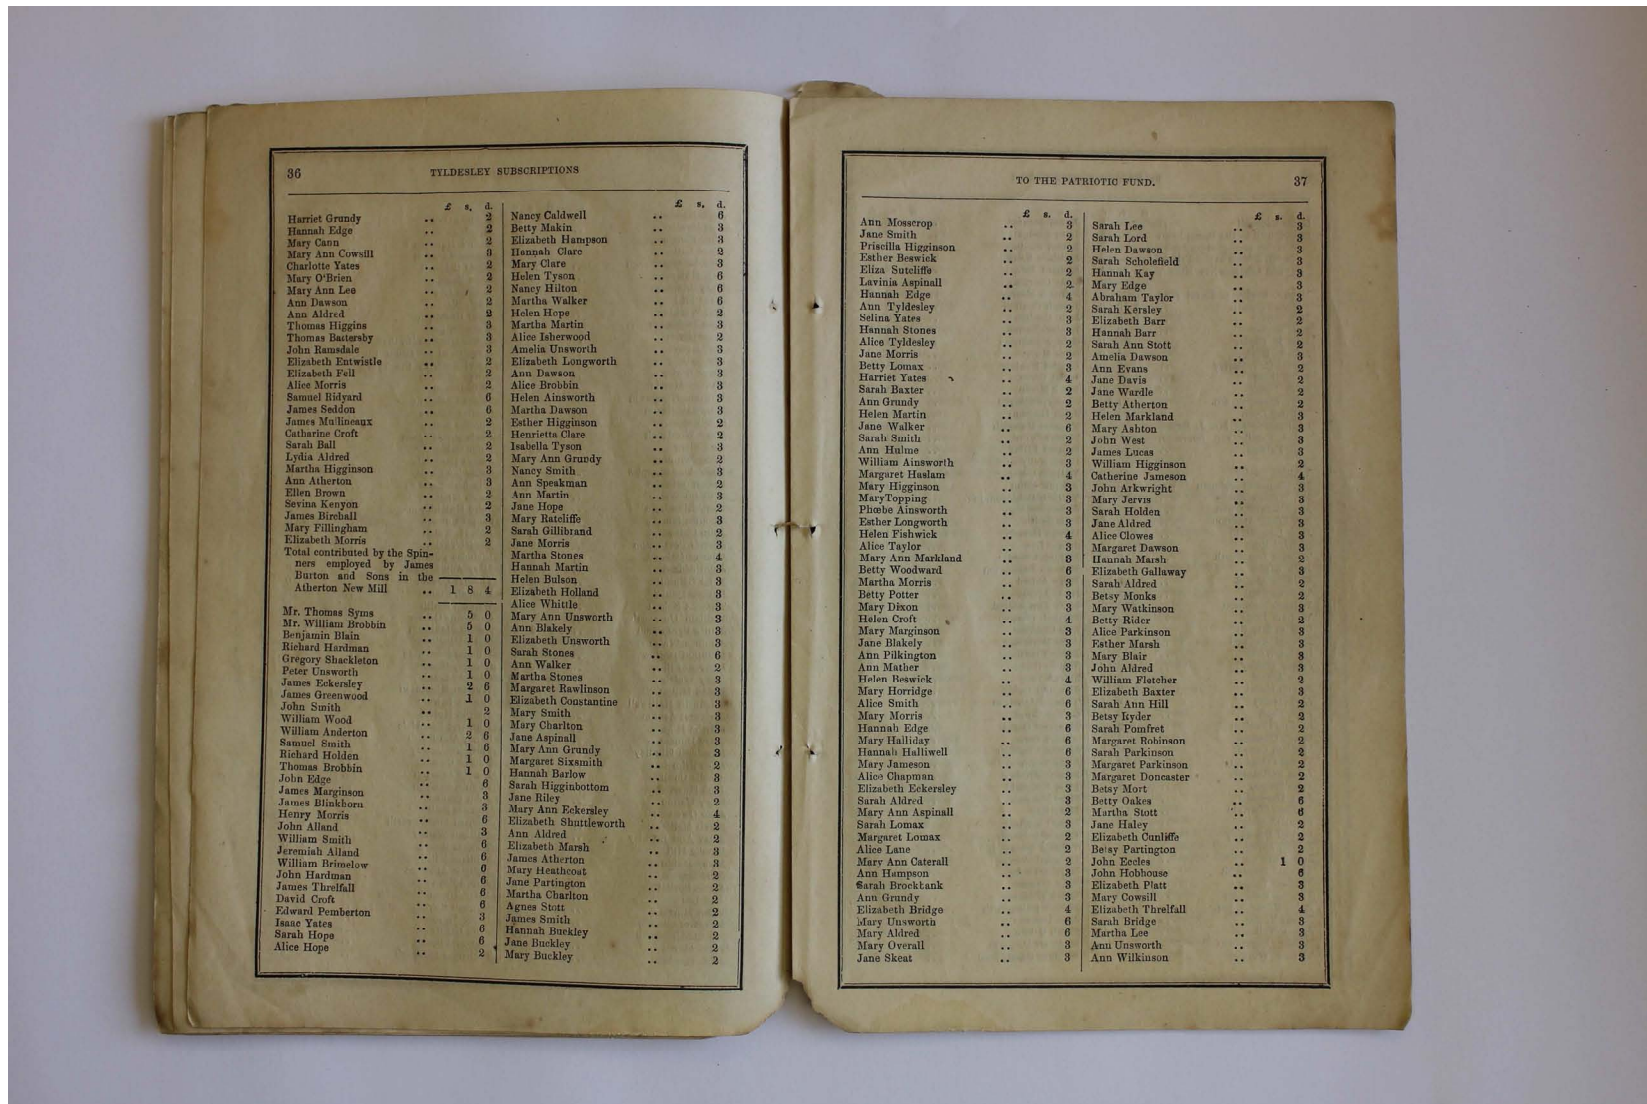 36
TYLDESLEY SUBSCRIPTIONS
£ s. d.
Harriet Grundy .. 2
Hannah Edge .. 2
Mary Cann .. 2
Mary Ann Cowsill .. 3
Charlotte Yates .. 2
Mary O'Brien .. 2
Mary Ann Lee .. 2
Ann Dawson .. 2
Ann Aldred .. 2
Thomas Higgins .. 3
Thomas Battersby .. 3
John Ramsdale .. 3
Elizabeth Entwistle .. 2
Elizabeth Fell .. 2
Alice Morris .. 2
Samuel Ridyard .. 6
James Seddon .. 6
James Mullineaux .. 2
Catharine Croft .. 2
Sarah Ball .. 2
Lydia Aldred .. 2
Martha Higginson .. 3
Ann Atherton .. 3
Ellen Brown .. 2
Sevina Kenyon .. 2
James Birchall .. 3
Mary Fillingham .. 2
Elizabeth Morris .. 2
Total contributed by the Spin-
ners employed by James
Burton and Sons in the
Atherton New Mill .. 1 8 4
Mr. Thomas Syms .. 5 0
Mr. William Brobbin .. 5 0
Benjamin Blain .. 1 0
Richard Hardman .. 1 0
Gregory Shackleton .. 1 0
Peter Unsworth .. 1 0
James Eckersley .. 2 6
James Greenwood .. 1 0
John Smith .. 2
William Wood .. 1 0
William Anderton .. 2 6
Samuel Smith .. 1 6
Richard Holden .. 1 0
Thomas Brobbin .. 1 0
John Edge .. 6
James Marginson .. 3
James Blinkhorn .. 3
Henry Morris .. 6
John Alland .. 3
William Smith .. 6
Jeremiah Alland .. 6
William Brimelow .. 6
John Hardman .. 6
James Threlfall .. 6
David Croft .. 6
Edward Pemberton .. 3
Isaac Yates .. 6
Sarah Hope .. 6
Alice Hope .. 2
£ s. d.
Nancy Caldwell .. 6
Betty Makin .. 3
Elizabeth Hampson .. 3
Hannah Clare .. 2
Mary Clare .. 3
Helen Tyson .. 6
Nancy Hilton .. 6
Martha Walker .. 6
Helen Hope .. 2
Martha Martin .. 3
Alice Isherwood .. 2
Amelia Unsworth .. 3
Elizabeth Longworth .. 3
Ann Dawson .. 3
Alice Brobbin .. 3
Helen Ainsworth .. 3
Martha Dawson .. 3
Esther Higginson .. 2
Henrietta Clare .. 2
Isabella Tyson .. 3
Mary Ann Grundy .. 2
Nancy Smith .. 3
Ann Speakman .. 2
Ann Martin .. 3
Jane Hope .. 2
Mary Ratcliffe .. 3
Sarah Gillibrand .. 2
Jane Morris .. 3
Martha Stones .. 4
Hannah Martin .. 3
Helen Bulson .. 3
Elizabeth Holland .. 3
Alice Whittle .. 3
Mary Ann Unsworth .. 3
Ann Blakely .. 3
Elizabeth Unsworth .. 3
Sarah Stones .. 6
Ann Walker .. 2
Martha Stones .. 3
Margaret Rawlinson .. 3
Elizabeth Constantine .. 3
Mary Smith .. 3
Mary Charlton .. 3
Jane Aspinall .. 3
Mary Ann Grundy .. 3
Margaret Sixsmith .. 2
Hannah Barlow .. 3
Sarah Higginbottom .. 3
Jane Riley .. 2
Mary Ann Eckersley .. 4
Elizabeth Shuttleworth .. 2
Ann Aldred .. 2
Elizabeth Marsh .. 3
James Atherton .. 3
Mary Heathcoat .. 2
Jane Partington .. 2
Martha Charlton .. 2
Agnes Stott .. 2
James Smith .. 2
Hannah Buckley .. 2
Jane Buckley .. 2
Mary Buckley .. 2
TO THE PATRIOTIC FUND.
37
£ s. d.
Ann Mosscrop .. 3
Jane Smith .. 2
Priscilla Higginson .. 2
Esther Beswick .. 2
Eliza Sutcliffe .. 2
Lavinia Aspinall .. 2
Hannah Edge .. 4
Ann Tyldesley .. 2
Selina Yates .. 3
Hannah Stones .. 3
Alice Tyldesley .. 2
Jane Morris .. 2
Betty Lomax .. 3
Harriet Yates .. 4
Sarah Baxter .. 2
Ann Grundy .. 2
Helen Martin .. 2
Jane Walker .. 6
Sarah Smith .. 2
Ann Hulme .. 2
William Ainsworth .. 3
Margaret Haslam .. 4
Mary Higginson .. 3
MaryTopping .. 3
Phœbe Ainsworth .. 3
Esther Longworth .. 3
Helen Fishwick .. 4
Alice Taylor .. 3
Mary Ann Markland .. 3
Betty Woodward .. 6
Martha Morris .. 3
Betty Potter .. 3
Mary Dixon .. 3
Helen Croft .. 4
Mary Marginson .. 3
Jane Blakely .. 3
Ann Pilkington .. 3
Ann Mather .. 3
Helen Beswick .. 4
Mary Horridge .. 6
Alice Smith .. 6
Mary Morris .. 3
Hannah Edge .. 6
Mary Halliday .. 6
Hannah Halliwell .. 6
Mary Jameson .. 3
Alice Chapman .. 3
Elizabeth Eckersley .. 3
Sarah Aldred .. 3
Mary Ann Aspinall .. 2
Sarah Lomax .. 3
Margaret Lomax .. 2
Alice Lane .. 2
Mary Ann Caterall .. 2
Ann Hampson .. 3
Sarah Brockbank .. 3
Ann Grundy .. 3
Elizabeth Bridge .. 4
Mary Unsworth .. 6
Mary Aldred .. 6
Mary Overall .. 3
Jane Skeat .. 3
£ s. d.
Sarah Lee .. 3
Sarah Lord .. 3
Helen Dawson .. 3
Sarah Scholefield .. 3
Hannah Kay .. 3
Mary Edge .. 3
Abraham Taylor .. 3
Sarah Kersley .. 2
Elizabeth Barr .. 2
Hannah Barr .. 2
Sarah Ann Stott .. 2
Amelia Dawson .. 3
Ann Evans .. 2
Jane Davis .. 2
Jane Wardle .. 2
Betty Atherton .. 2
Helen Markland .. 3
Mary Ashton .. 3
John West .. 3
James Lucas .. 3
William Higginson .. 2
Catherine Jameson .. 4
John Arkwright .. 3
Mary Jervis .. 3
Sarah Holden .. 3
Jane Aldred .. 3
Alice Clowes .. 3
Margaret Dawson .. 3
Hannah Marsh .. 2
Elizabeth Gallaway .. 3
Sarah Aldred .. 2
Betsy Monks .. 2
Mary Watkinson .. 3
Betty Rider .. 2
Alice Parkinson .. 3
Esther Marsh .. 3
Mary Blair .. 3
John Aldred .. 3
William Fletcher .. 2
Elizabeth Baxter .. 3
Sarah Ann Hill .. 2
Betsy Ryder .. 2
Sarah Pomfret .. 2
Margaret Robinson .. 2
Sarah Parkinson .. 2
Margaret Parkinson .. 2
Margaret Doncaster .. 2
Betsy Mort .. 2
Betty Oakes .. 6
Martha Stott .. 6
Jane Haley .. 2
Elizabeth Cunliffe .. 2
Betsy Partington .. 2
John Eccles .. 1 0
John Hobhouse .. 6
Elizabeth Platt .. 3
Mary Cowsill .. 3
Elizabeth Threlfall .. 4
Sarah Bridge .. 3
Martha Lee .. 3
Ann Unsworth .. 3
Ann Wilkinson .. 3